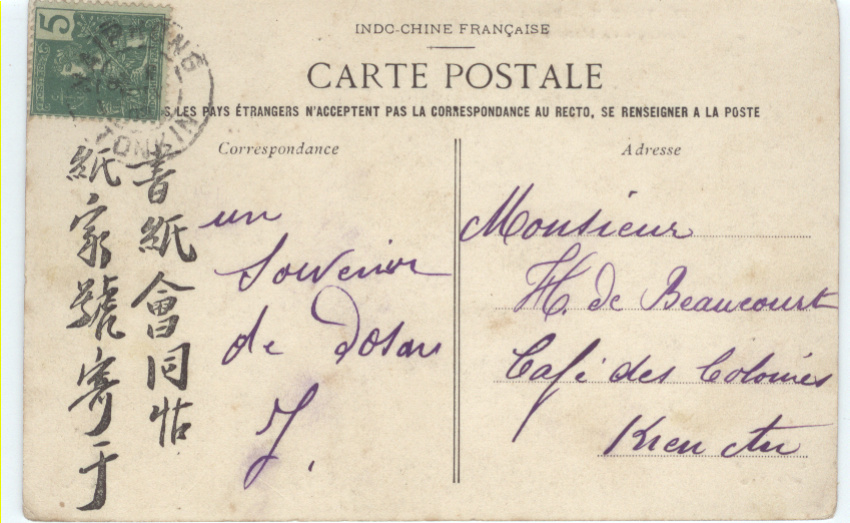 5
HAIPHONG
TONKIN
INDO-CHINE FRANÇAISE
CARTE POSTALE
LES PAYS ÉTRANGERS N'ACCEPTENT PAS LA CORRESPONDANCE AU RECTO, SE RENSEIGNER A LA POSTE
Correspondance
書紙會同怗
紙家號寄于
un
Souvenir
de Doson
J.
Adresse
Monsieur
H. de Beaucourt
Café des Colonies
Kien An